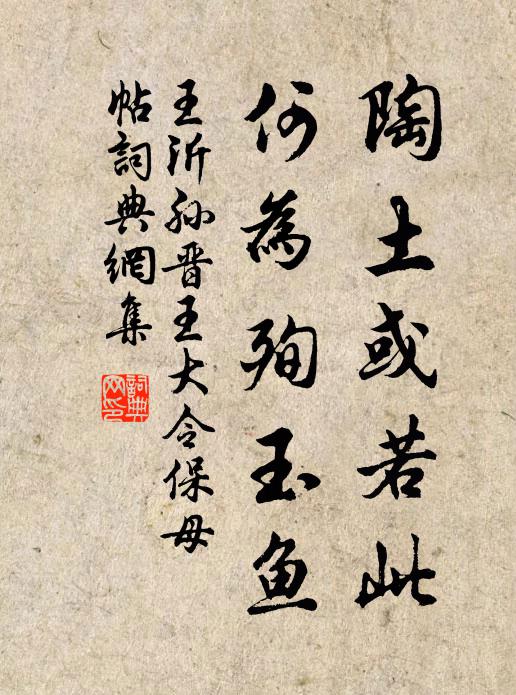 陶土或若此
何為殉玉魚
王沂孙晋王大令保母
帖詞典網集
詞典网印